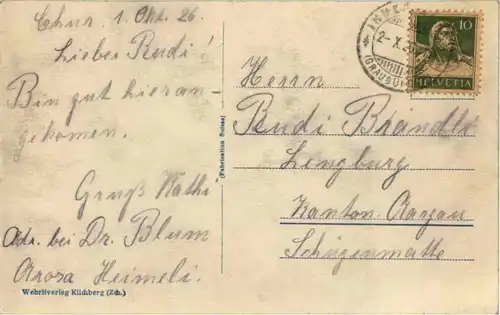 Chur. 1. Okt. 26.
Lieber Rudi!
Bin gut hieran-
gekomen.
Gruß Kathi
Adr. bei Dr. Blum
Arosa Heimeli.
Wehrliverlag Kilchberg (Zch.)
(Fabrication Suisse)
2-X.2
(GRAUBÜ
10
HELVETIA
Herrn
Rudi Brändli
Lengburg
Kanton-Aargau
Schüzenmatte